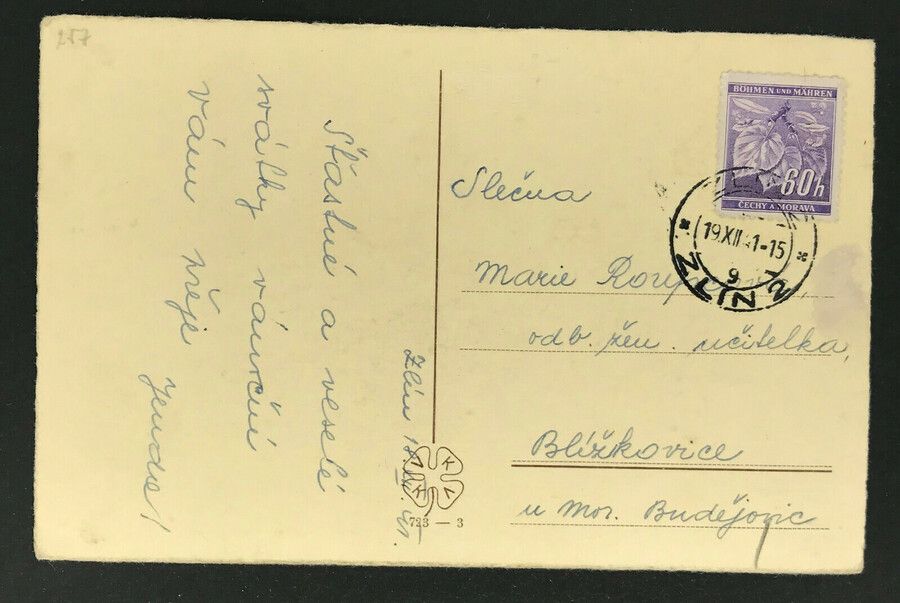 257
Šťastné a veselé
svátky vánoční
vám přeje
Jenda!
Zlín 18.XII.41.
BÖHMEN UND MÄHREN
60h
ČECHY A MORAVA
ZLÍN 2
19.XII.41-15
9
Slečna
Marie
odb. žen. učitelka,
Blížkovice
u Mor. Budějovic
723 — 3